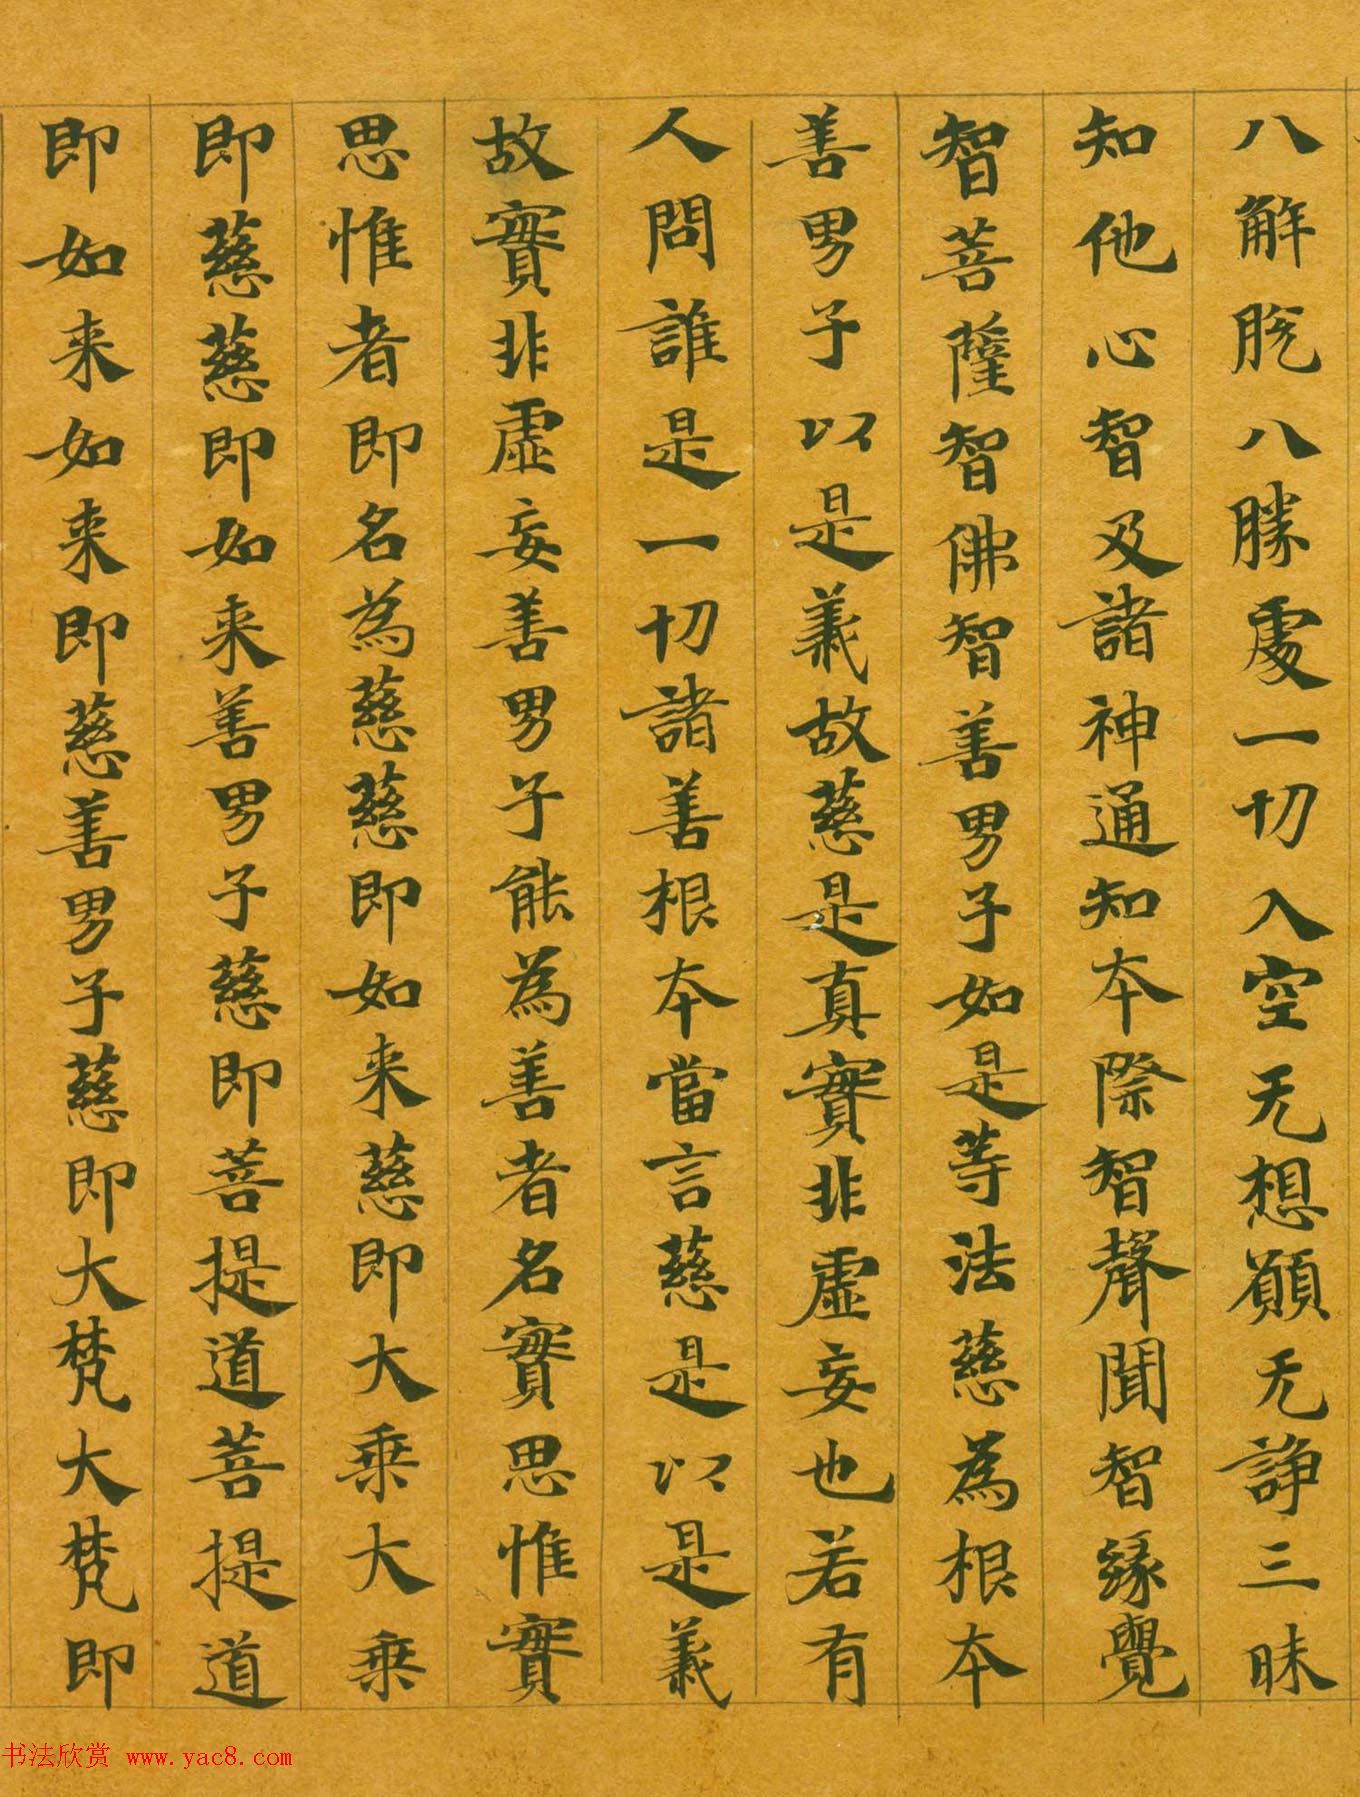 八解脫八勝處一切入空无想願无諍三昧
知他心智及諸神通知本際智聲聞智緣覺
智菩薩智佛智善男子如是等法慈為根本
善男子以是義故慈是真實非虛妄也若有
人問誰是一切諸善根本當言慈是以是義
故實非虛妄善男子能為善者名實思惟實
思惟者即名為慈慈即如来慈即大乘大乘
即慈慈即如来善男子慈即菩提道菩提道
即如来如来即慈善男子慈即大梵大梵即
书法欣赏 www.yac8.com